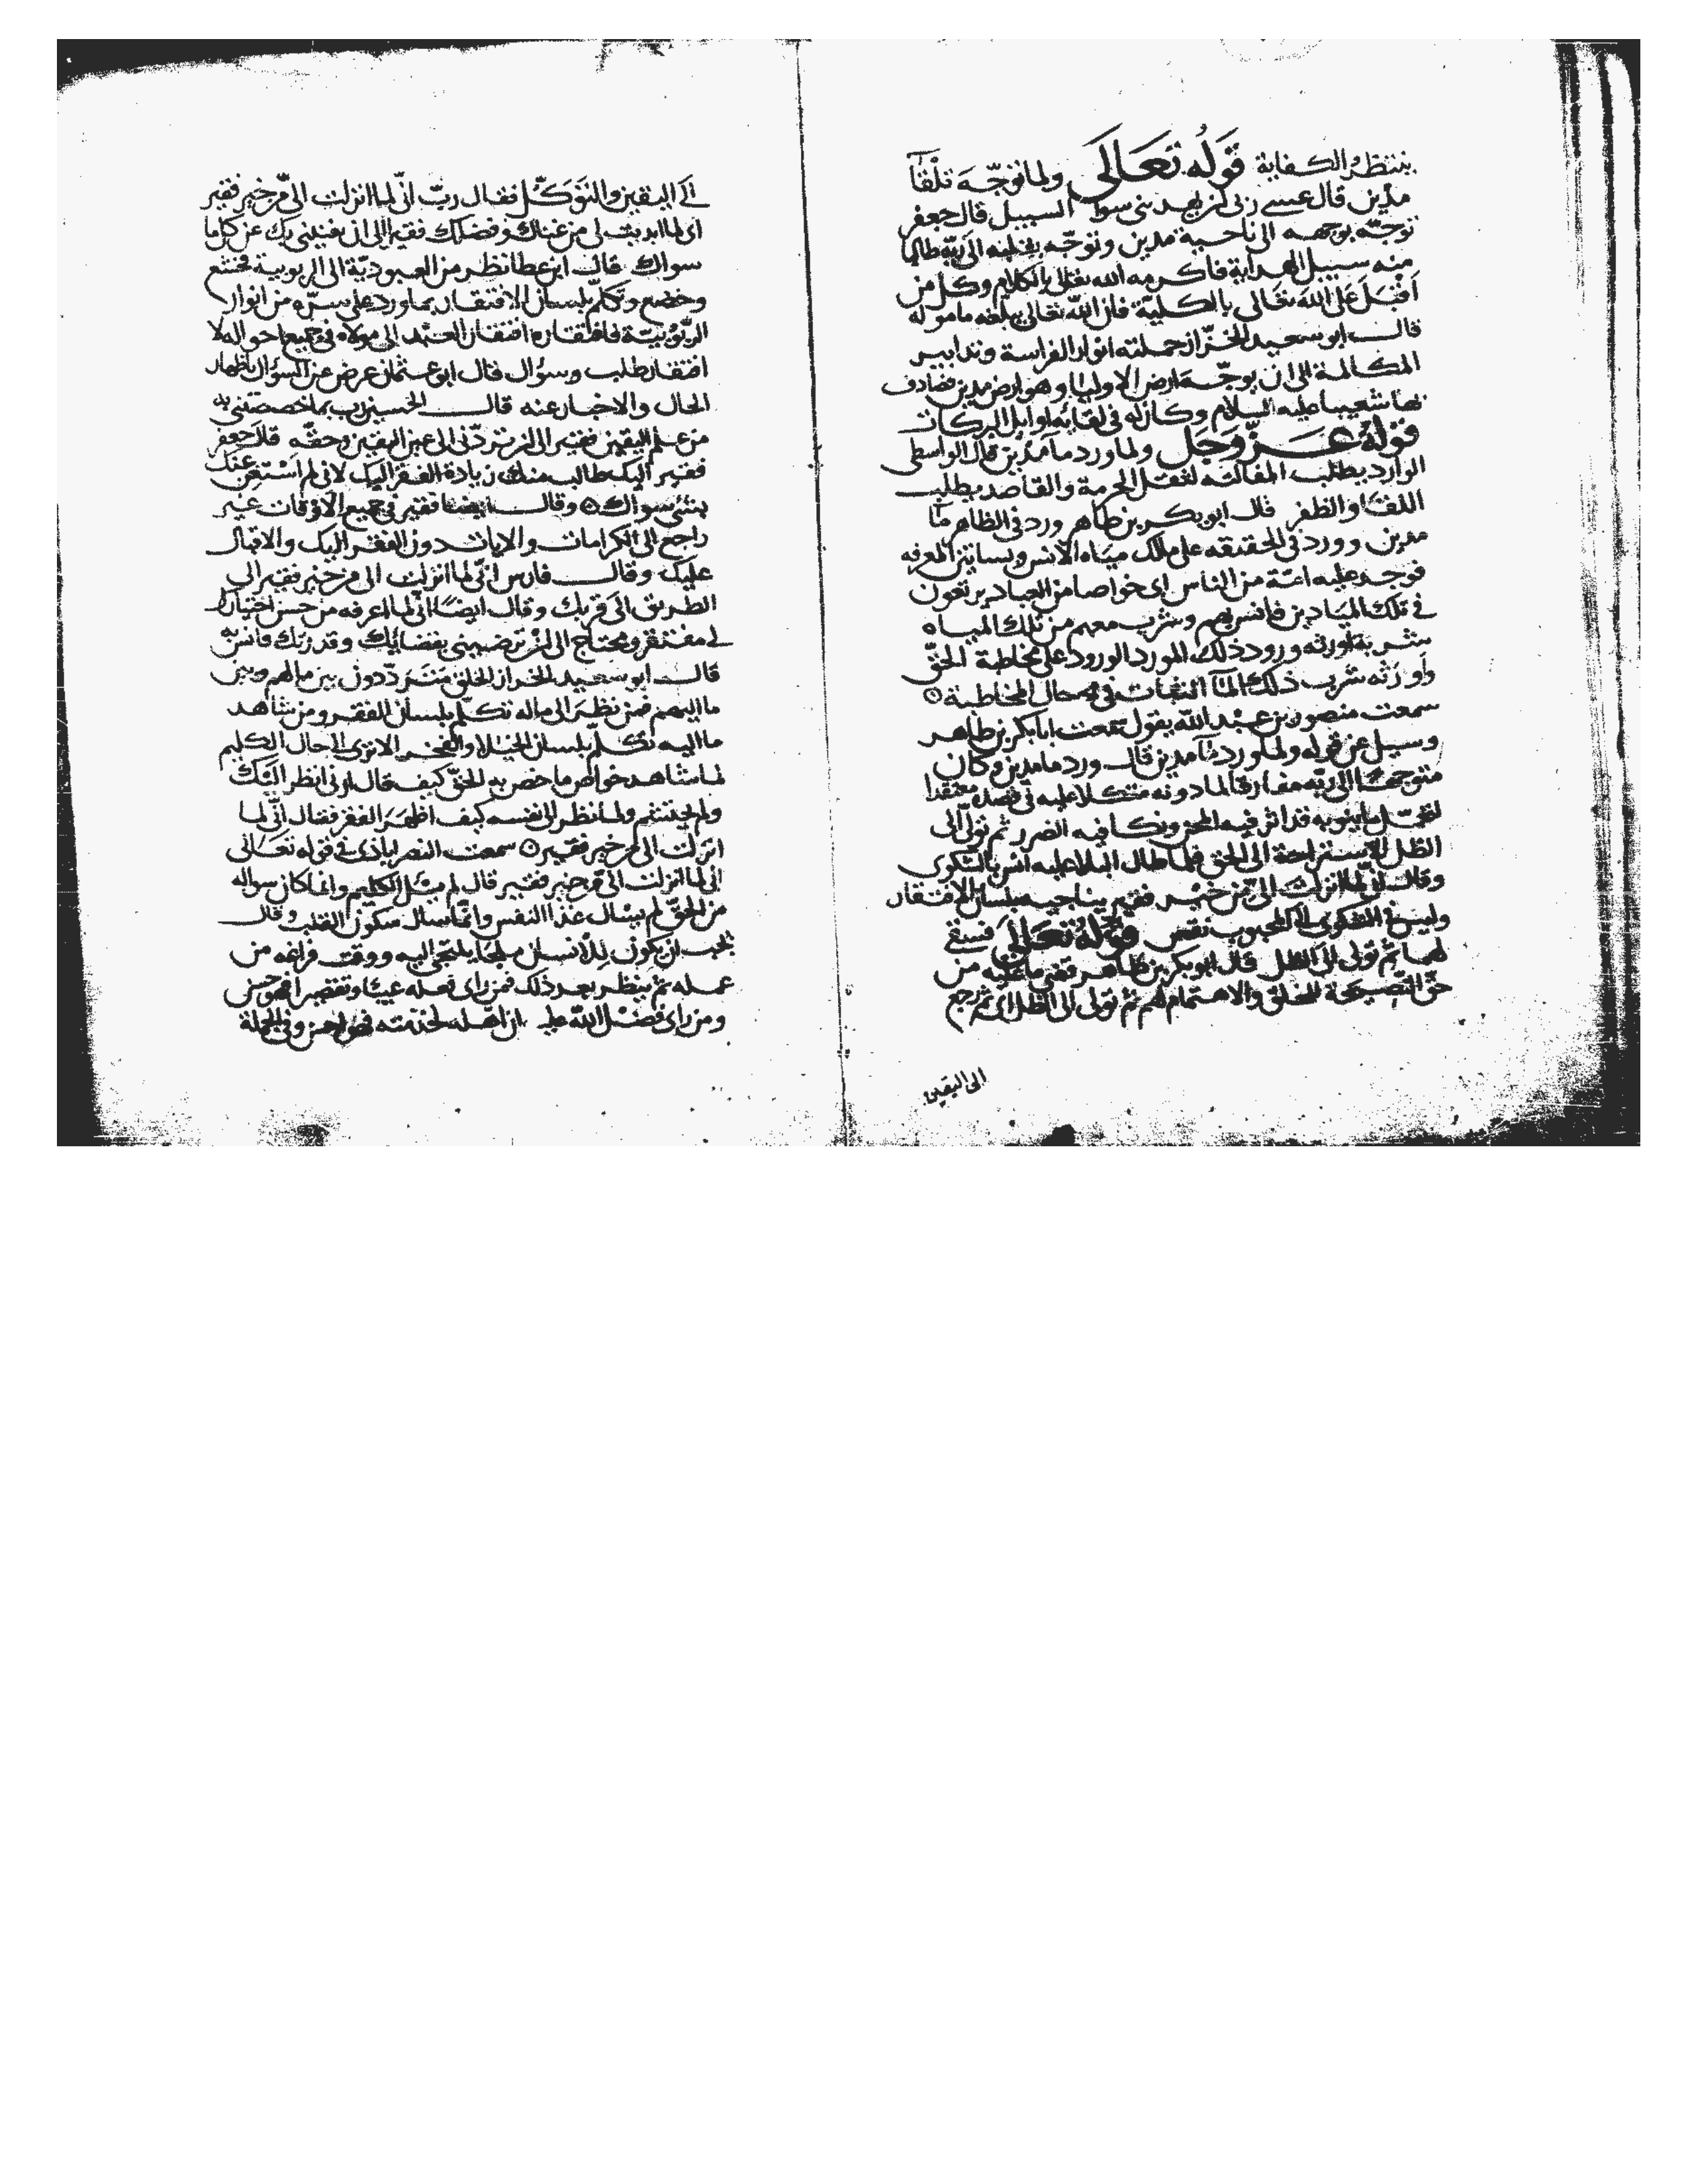 ينتظر الكفاية قوله تعالى ولما توجّه تلقآ
مدين قال عسى ربى ان يهدينى سوا السبيل قال جعفر
توجّه بوجهه الى ناحية مدين وتوجّه بقلبه الى ربّه طالبا
منه سبيل الهداية فاكرمه الله تعالى بالكلام وكل من
اقبل على الله تعالى بالكلية فان الله تعالى يبلغه مأموله
قال ابو سعيد الخرّاز حملته انوار الفراسة وتدابير
المكالمة الى ان توجّه ارض الاوليا وهو ارض مدين فصادف
بها شعيبا عليه السلام وكان له فى لقائه اوايل البركات
قوله عزّ وجل ولما ورد مآ مدين قال الواسطى
الوارد يطلب لثقل الحرمة والقاصد يطلب
اللقا والظفر قال ابو بكر بن طاهر ورد فى الظاهر مآ
مدين وورد فى الحقيقه على مياه الانس وبساتين المعرفه
فوجد عليه امّة من الناس اى خواصا من العباد يرتعون
فى تلك الميادين فانس بهم وشرب معهم من تلك المياه
شربة اورثه ورود ذلك المورد الورود على مخاطبة الحقّ
واورثه شرب ذلك المآ الثبات فى محال المخاطبة
سمعت منصور بن عبد الله يقول سمعت ابا بكر بن طاهر
وسيل عن قوله ولما ورد مآ مدين قال ورد ما مدين وكان
متوجها الى ربّه مفارقا لما دونه متكلا عليه فى قصده معتقدا
لتحمّل ما ينوبه قد اثر فيه المحن ونكا فيه الضرر ثم تولّى الى
الظل للاستراحة الى الحق فلما طال البلا عليه انس بالشكوى
وقال انى لما انزلت الىّ من خير فقير يناجيه بلسان الافتقار
وليس فى الشكوى الى المحبوب نقص قوله تعالى فسقى
لهما ثم تولى الى الظل قال ابو بكر بن طاهر قضى ما عليه من
حقّ النصيحة للخلق والاهتمام لهم ثم تولى الى الظل اى ثم رجع
الى اليقين
الى اليقين والتوكّل فقال ربّ انّى لما انزلت الىّ من خير فقير
اى لما ابديت لى من غناك وفضلك فقير الى ان تغنينى بك عن كل ما
سواك قال ابن عطا نظر من العبوديّة الى الربوبية فخشع
وخضع وتكلّم بلسان الافتقار بما ورد على سرّه من انوار
الربّوبيّة فافتقاره افتقار العبد الى مولاه فى جميع احواله لا
افتقار طلب وسؤال قال ابو عثمان عرض عن السؤال باظهار
الحال والاخبار عنه قال الحسين رب بما خصصتنى به
من علم اليقين فقير الى ان تردّنى الى عين اليقين وحقّه قال جعفر
فقير اليك طالب منك زيادة الفقر اليك لانى لم استغن عنك
بشئ سواك وقال ايضا فقير فى جميع الاوقات غير
راجع الى الكرامات والايات دون الفقر اليك والاقبال
عليك وقال فارس انّى لما انزلت الى من خير فقير الى
الطريق الى قربك وقال ايضًا انّى لما المعرفه من حسن اختيارك
لى مفتقر ومحتاج الى ان ترضينى بقضايك وقدرتك فانس به
قال ابو سعيد الخراز الخلق متردّدون بين ما لهم وبين
ما اليهم فمن نظر الى ما له تكلّم بلسان الفقر ومن شاهد
ما اليه تكلّم بلسان الخيلا والفخر الا ترى الى حال الكليم
لما شاهد خواطر ما خصه به الحقّ كيف قال ارنى انظر اليك
ولم يحتشم ولما نظر الى نفسه كيف اظهر الفقر فقال انّى لما
انزلت الى من خير فقير سمعت النصراباذى فى قوله تعالى
انى لما انزلت الى من خير فقير قال لم يسئل الكليم وانما كان سواله
من الحقّ لم يسال غذا النفس وانّما سال سكون القلب وقال
يجب ان يكون للانسان ملجأ يلتجئ اليه ووقت فراغه من
عمله ثم ينظر بعد ذلك فمن راى فعله عيبا وتقصيرا فهو حسن
ومن راى فضل الله عليه ان اهّله لخدمته فهو احسن وفى الجملة